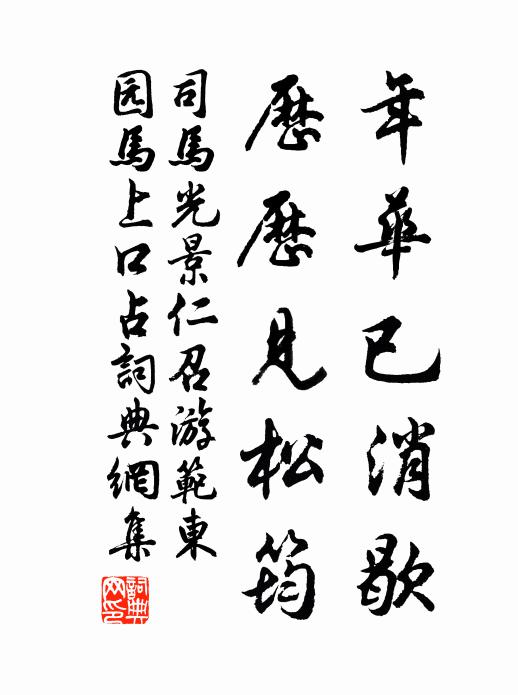 年華已消歇
歷歷見松筠
司馬光景仁召游範東
园馬上口占詞典網集
詞典
网印